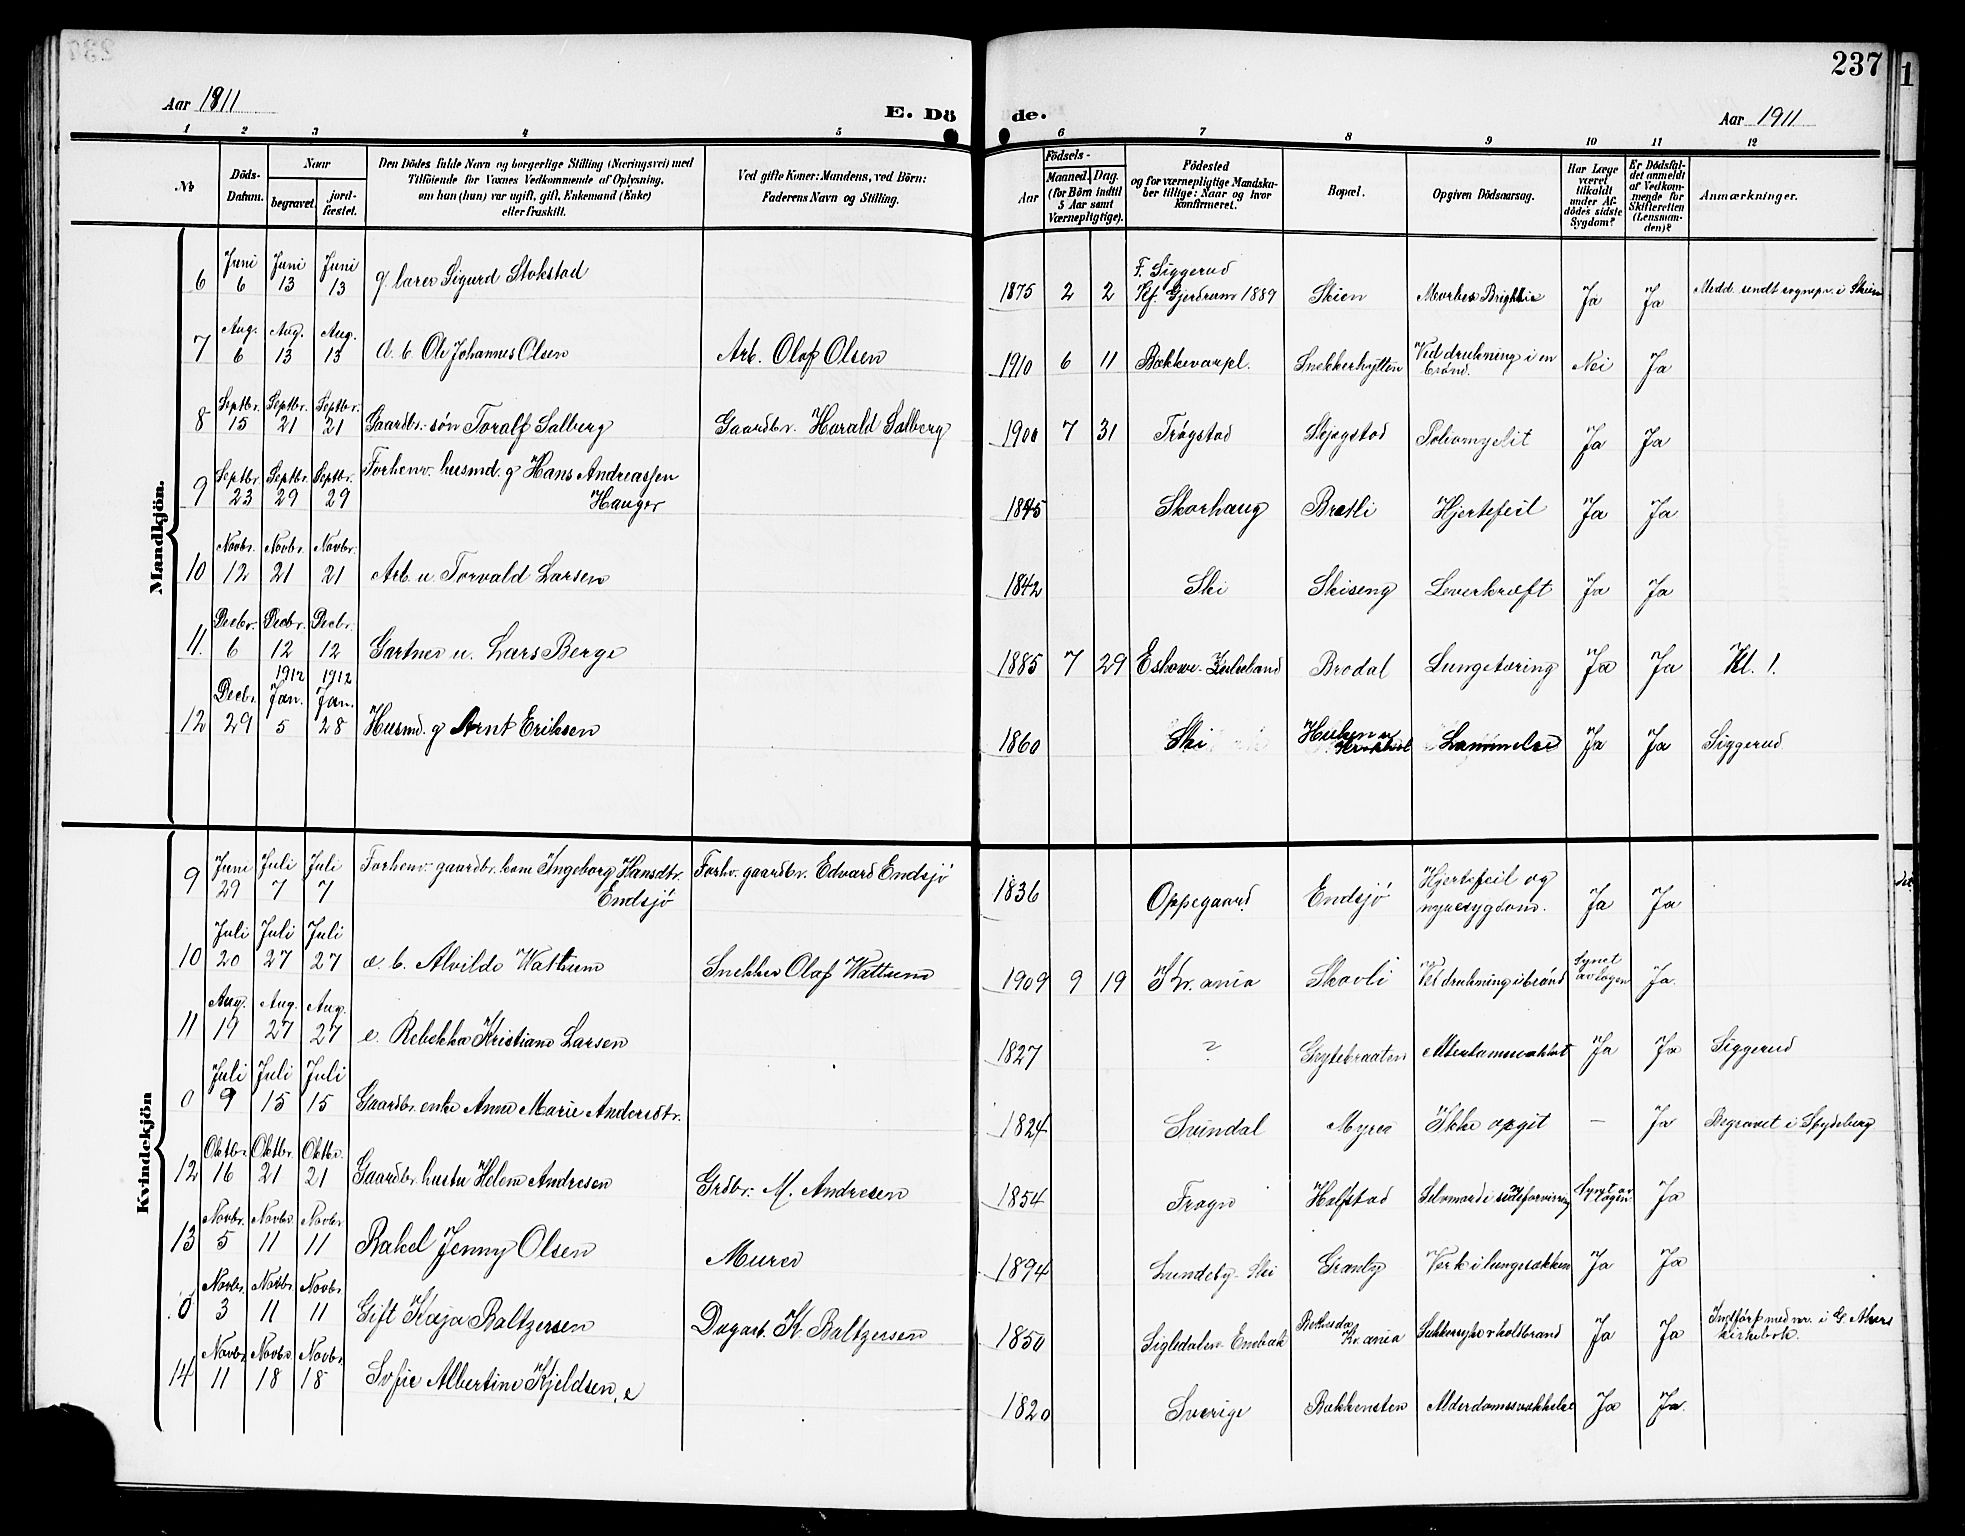 237
Aar 1911
E. Dö
de.
Aar 1911
1 2 3 4 5 6 7 8 9 10 11 12
No
Döds-
Datum.
Naar
begravet.
jord-
fæstet.
Den Dödes fulde Navn og borgerlige Stilling (Næringsvei) med
Tilföiende for Voxnes Vedkommende af Oplysning,
om han (hun) var ugift, gift, Enkemand (Enke)
eller fraskilt.
Ved gifte Koner: Mandens, ved Börn:
Faderens Navn og Stilling.
Födsels-
Aar
Maaned.
Dag.
(for Börn indtil
5 Aar samt
Værnepligtige).
Födested
og for værnepligtige Mandska-
ber tillige: Naar og hvor
konfirmeret.
Bopæl.
Opgiven Dödsaarsag.
Har Læge
været
tilkaldt
under Af-
dödes sidste
Sygdom?
Er Dödsfal-
det anmeldt
af Vedkom-
mende for
Skifteretten
(Lensman-
den)?
Anmærkninger.
Mandkjön.
6 Juni 6 Juni 13 Juni 13 g. lærer Sigurd Stokstad 1875 2 2 F. Siggerud
Kf. Gjerdrum 1889 Skien Morbus Brightii Ja Ja Medd. sendt sognepr. i Skien
7 Aug. 6 Aug. 13 Aug. 13 d. b. Ole Johannes Olsen Arb. Olaf Olsen 1910 6 11 Bækkevarpl. Snekkerhytten Ved drukning i en
brønd. Nei Ja
8 Septbr. 15 Septbr. 21 Septbr. 21 Gaardbr. søn Toralf Salberg Gaardbr. Harald Salberg 1900 7 31 Trøgstad Skjegstad Poliomyelit Ja Ja
9 Septbr. 23 Septbr. 29 Septbr. 29 Forhenv. husmd. g Hans Andreassen
Hauger 1845 Skorhaug Brætli Hjertefeil Ja Ja
10 Novbr. 12 Novbr. 21 Novbr. 21 Arb. u. Torvald Larsen 1842 Ski Skiseng Leverkræft Ja Ja
11. Decbr. 6 Decbr. 12 Decbr. 12 Gartner u. Lars Berge 1885 7 29 Brodal Lungetæring Ja Ja Kl. 1.
12 Decbr. 29 1912 Jan. 5 1912 Jan. 28 Husmd. g Arnt Eriksen 1860 Ski Lammelse Ja Ja Siggerud
Kvindekjön
9 Juni 29 Juli 7 Juli 7 Forhenv. gaardbr. kone Ingeborg Hansdtr.
Endsjø Forhv. gaardbr. Edvard Endsjø 1836 Oppegaard Endsjø Hjertefeil og
nyresygdom. Ja Ja
10 Juli 20 Juli 27 Juli 27 d. b. Alvilde Wattum Snekker Olaf Wattum 1909 9 19 Kr.ania Skovli Ved drukning i brønd Synet
av lægen Ja.
11 Aug. 19 Aug. 27 Aug. 27 e. Rebekka Kristiane Larsen 1827 ? Grytebraaten Alderdomssvakhet Ja Ja Siggerud
0 Juli 9 Juli 15 Juli 15 Gaardbr. enke Anne Marie Andersdtr. 1824 Svindal Myrer Ikke opgit — Ja Begravet i Spydeberg
12 Oktbr. 16 Oktbr. 21 Oktbr. 21 Gaardbr. hustru Helene Andresen Grdbr. M. Andresen 1854 Frogn Halfstad Selvmord i sindsforvirring Synet av
lægen Ja
13 Novbr. 5 Novbr. 11 Novbr. 11 Rakel Jenny Olsen Murer 1894 Lundeby - Ski Granby Verk i lungesækken Ja Ja
0 Novbr. 3 Novbr. 11 Novbr. 11 Gift Kaja Baltzersen Dagarb. K. Baltzersen 1850 Sigledalen Enebak Bethesda
Kr.ania Sukkersyke, koldbrand Ja Ja Indført med nr. i G. Akers
kirkebok.
14 Novbr. 11 Novbr. 18 Novbr. 18 Sofie Albertine Kjeldsen, e 1820 Sverige Bækkensten Alderdomssvakkelse Ja Ja.